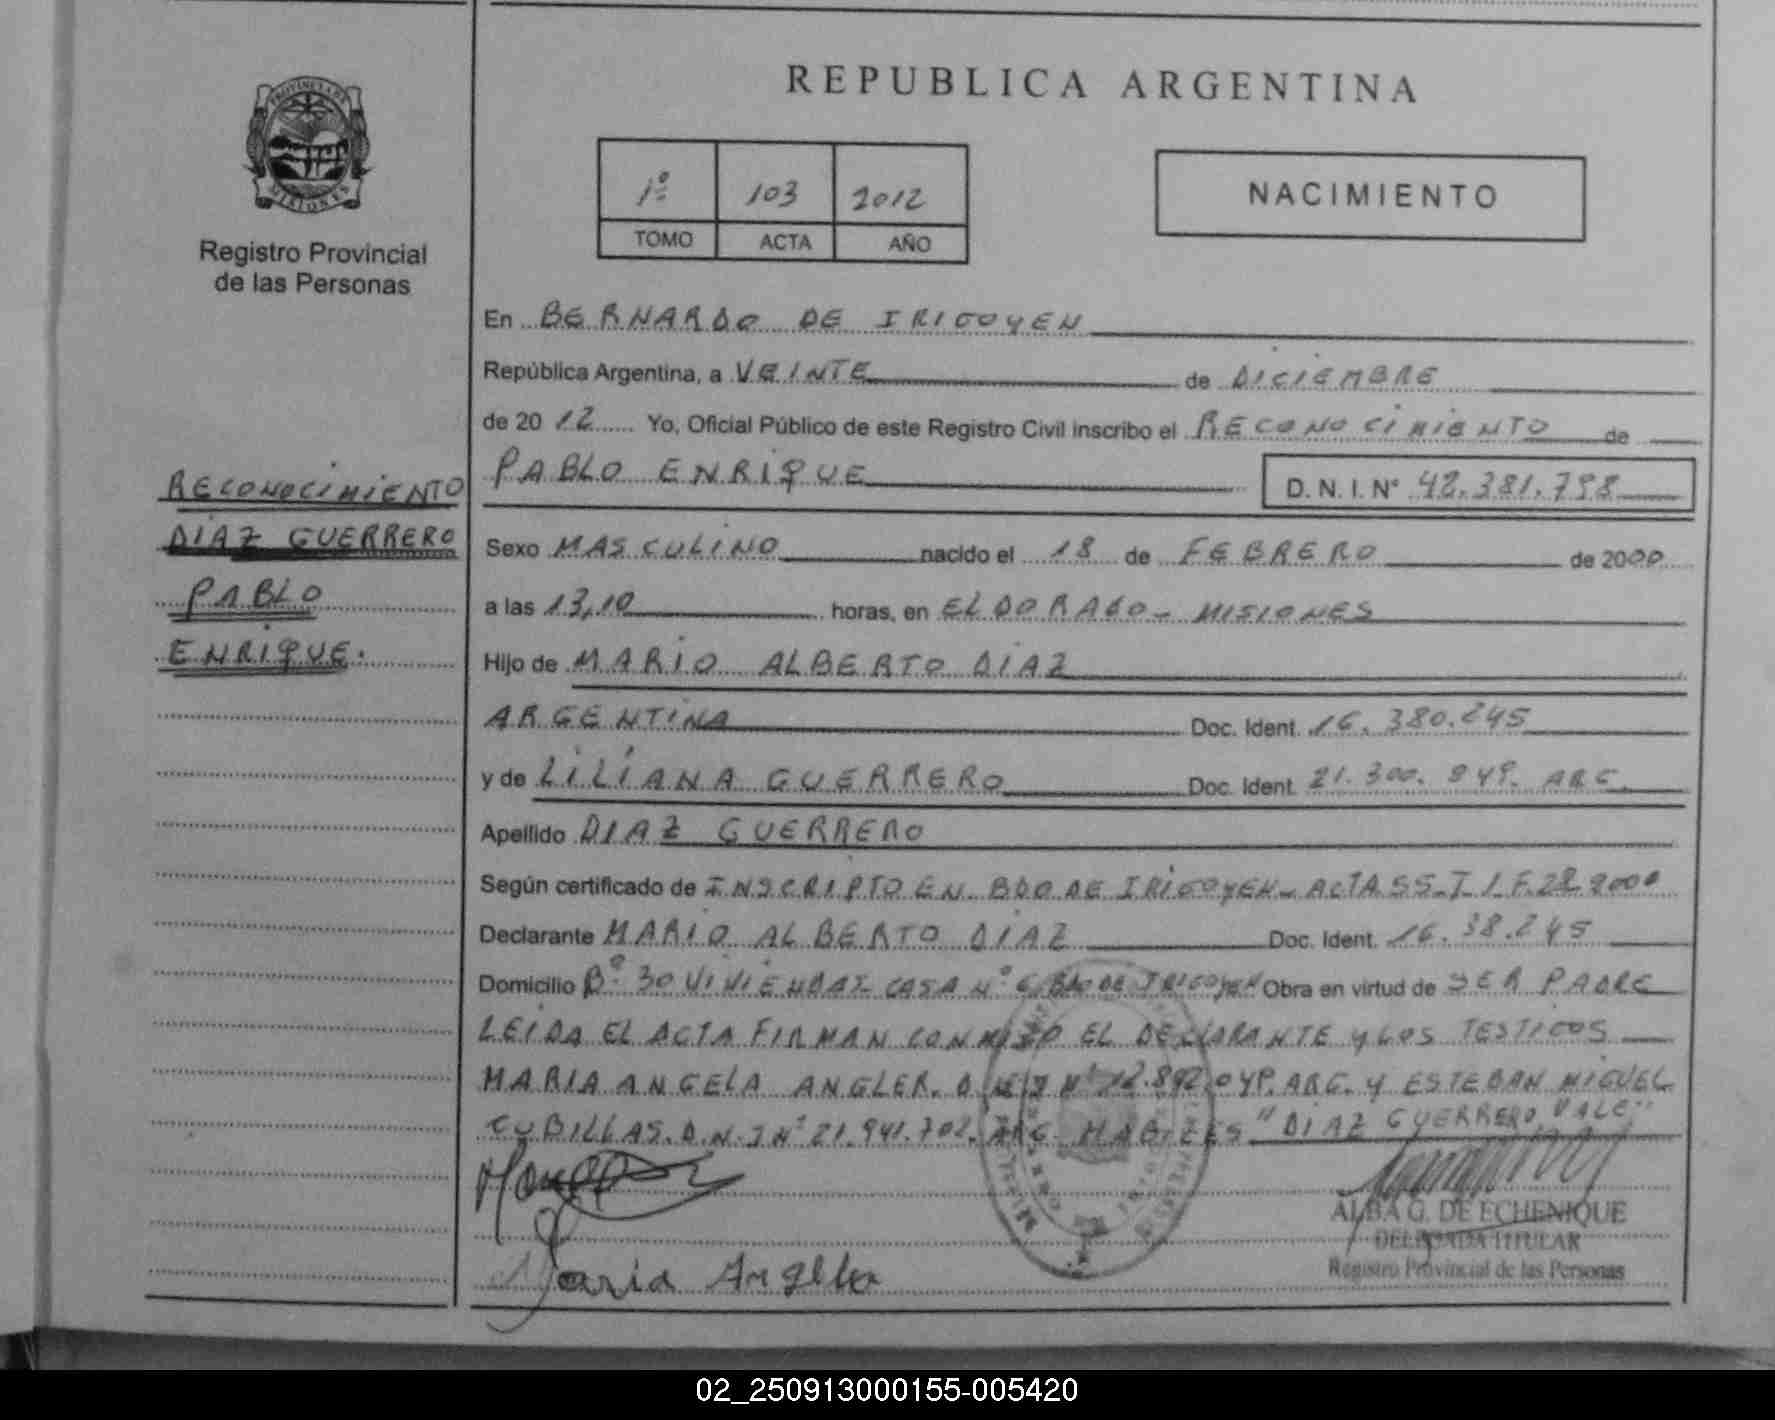 PROVINCIA DE
MISIONES
Registro Provincial
de las Personas
RECONOCIMIENTO
DIAZ GUERRERO
PABLO
ENRIQUE.
REPUBLICA ARGENTINA
1º 103 2012
TOMO ACTA AÑO
NACIMIENTO
En BERNARDO DE IRIGOYEN
República Argentina, a VEINTE de DICIEMBRE
de 2012 Yo, Oficial Público de este Registro Civil inscribo el RECONOCIMIENTO de
PABLO ENRIQUE D. N. I. Nº 42.381.798
Sexo MASCULINO nacido el 18 de FEBRERO de 2000
a las 13,10 horas, en ELDORADO - MISIONES
Hijo de MARIO ALBERTO DIAZ
ARGENTINA Doc. Ident. 16.380.245
y de LILIANA GUERRERO Doc. Ident. 21.300.949. ARG.
Apellido DIAZ GUERRERO
Según certificado de INSCRIPTO EN BDO DE IRIGOYEN - ACTA 55-T1 F.28 2000
Declarante MARIO ALBERTO DIAZ Doc. Ident. 16.38.245
Domicilio Bº 30 VIVIENDAS CASA Nº 6 BDO DE IRIGOYEN Obra en virtud de SER PADRE
LEIDA EL ACTA FIRMAN CONMIGO EL DECLARANTE y LOS TESTIGOS
MARIA ANGELA ANGLER. D.N.I Nº 12.892.049. ARG. Y ESTEBAN MIGUEL
CUBILLAS. D.N.I Nº 21.941.702. ARG. "DIAZ GUERRERO VALE"
Maria Angela
ALBA G. DE ECHENIQUE
DELEGADA TITULAR
Registro Provincial de las Personas
02_250913000155-005420